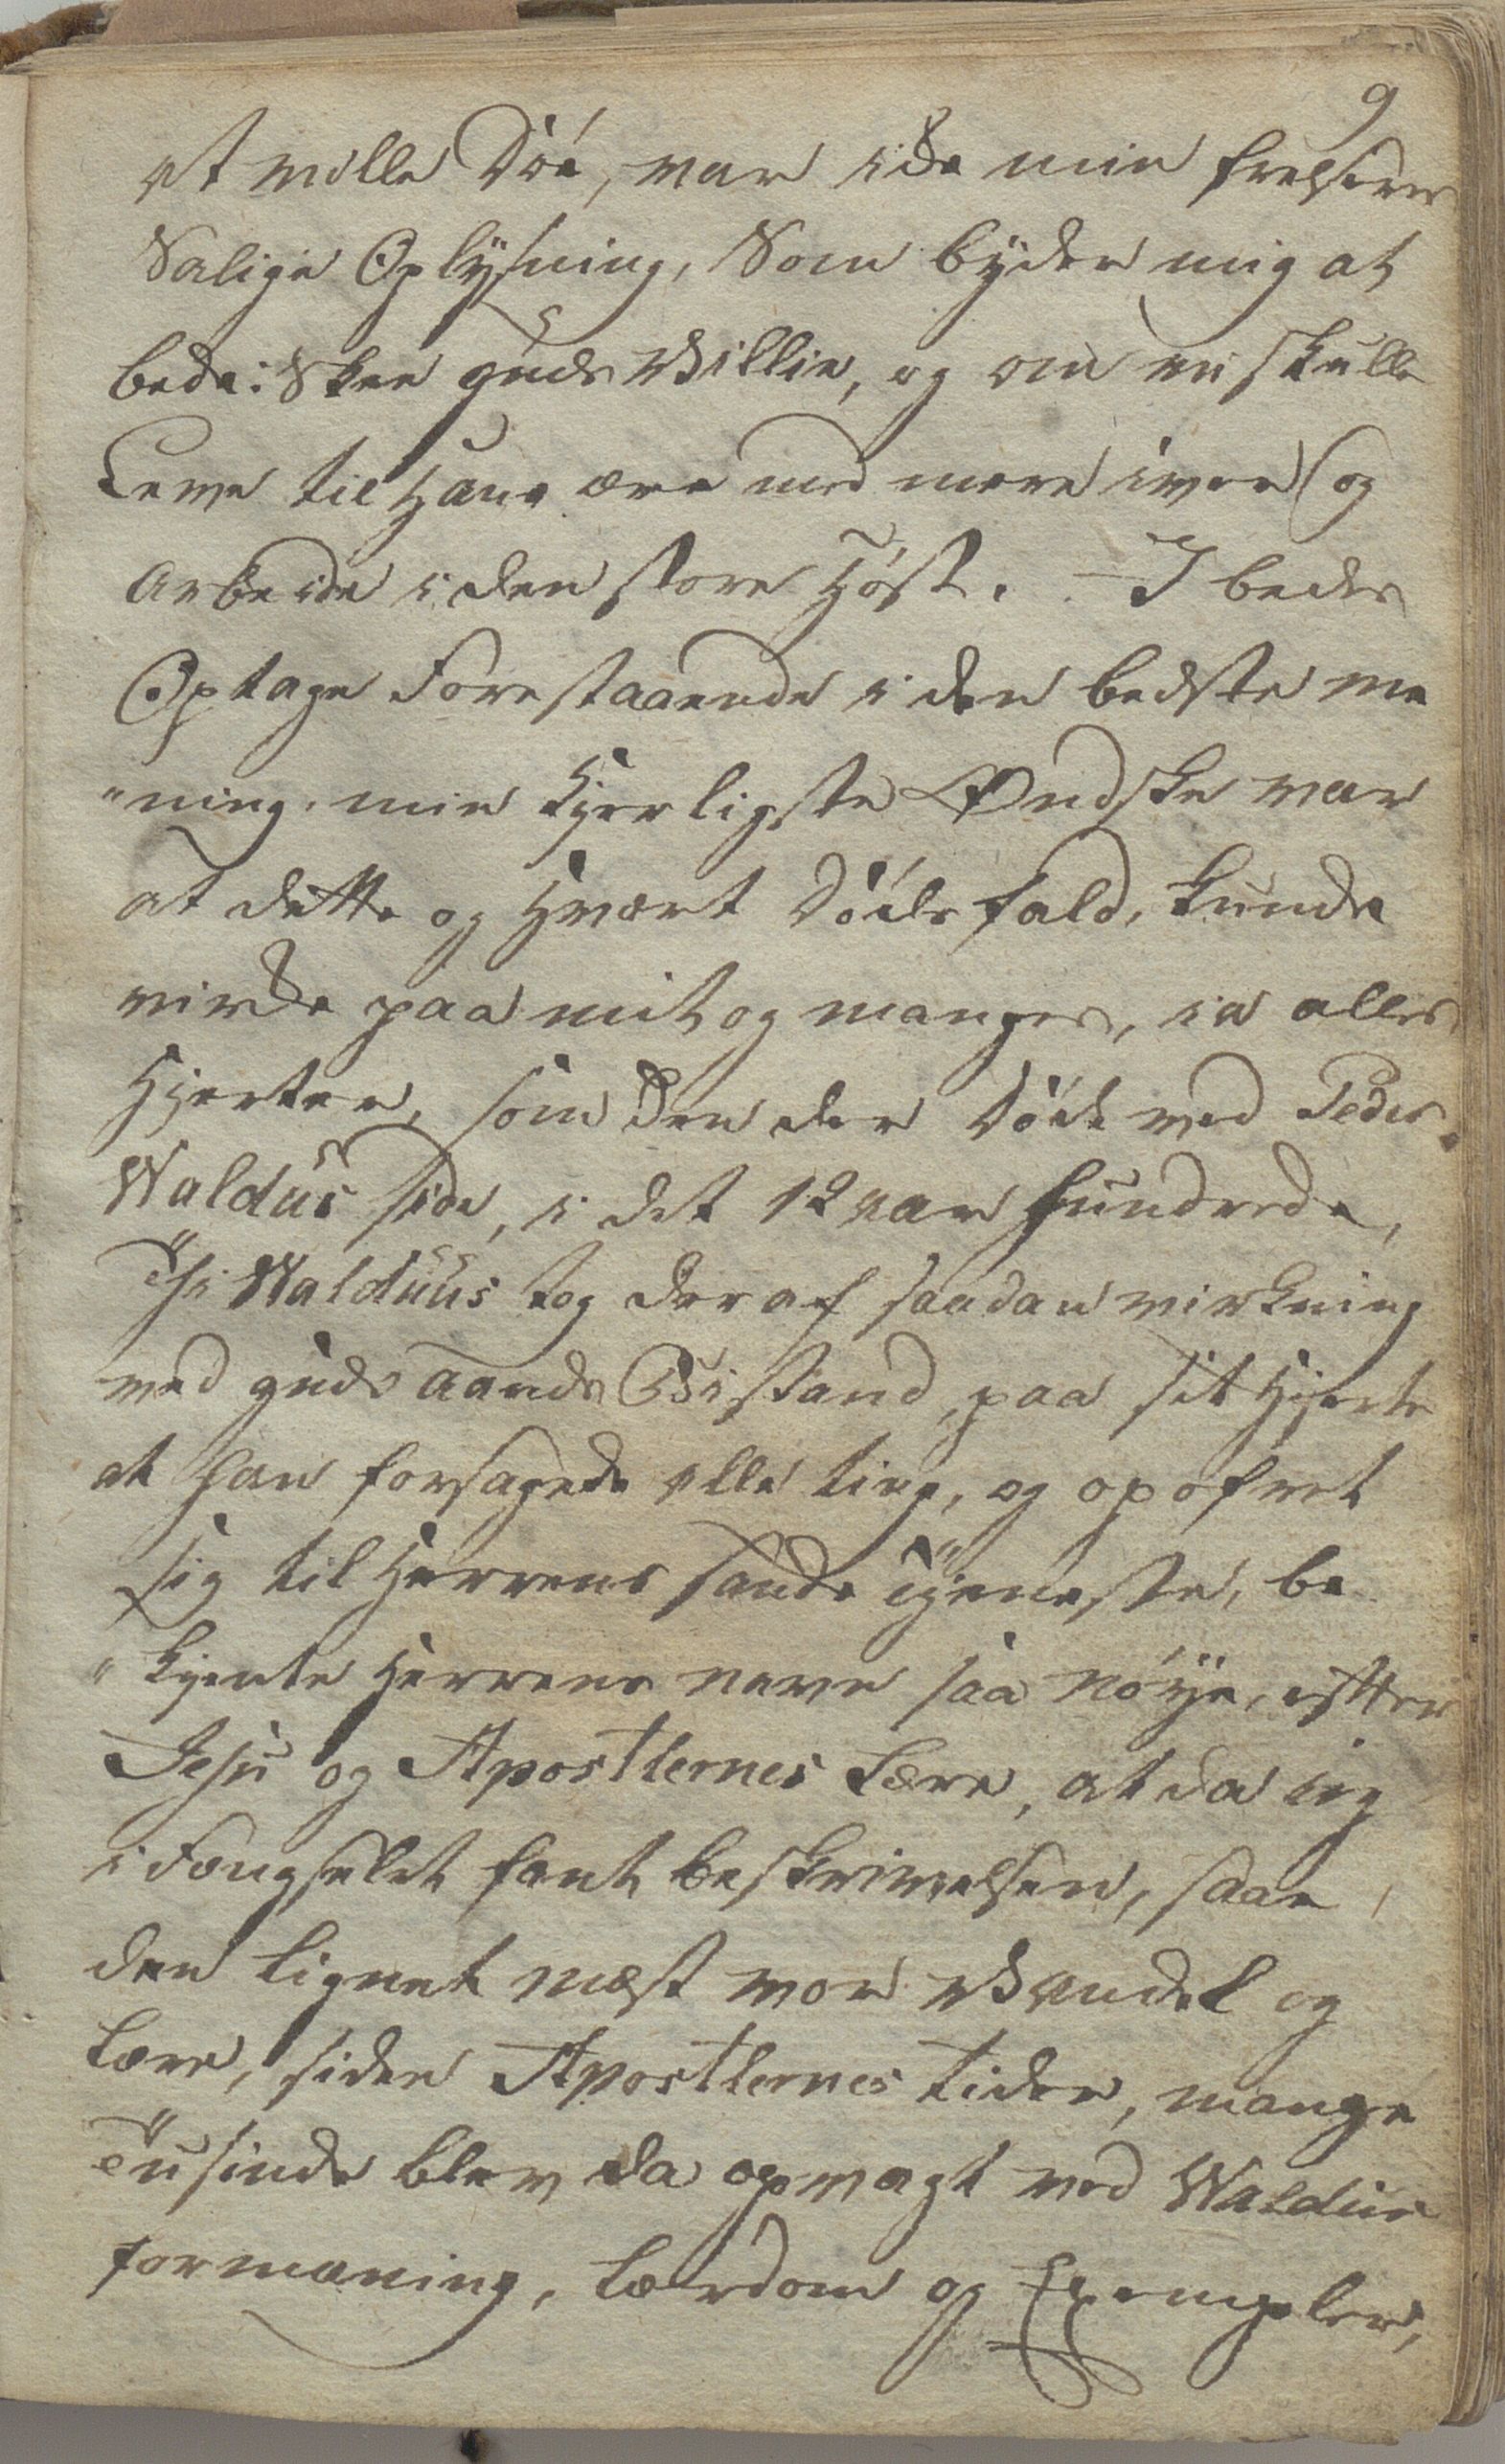 9
at ville Döe, var ikke min frelseres
Salige Oplÿsning, Som bÿder mig at
bede: Skee guds Villie, og om vi skulle
Leve til Hans ære med mere iver og
Arbeide i den store Höst. I bedes
Optage Forestaaende i den bedste me
"ning. min kjerligste Øndske var
at dette og hvært Dödsfald, kunde
virke paa mit og manges, ia alles
Hjerter, som den der Döde ved Peder
Waldus side, i det 12 aar hundrede,
Thi Walduus tog deraf saadan virkning
med guds aands Bistand, paa sit Hjerte
at han forsagede alle ting, og opofret
sig til Herrens sande Tjeneste, be
"kjente Herrens navn saa nöÿe, efter
Jesu og Apostlernes Lære, at da ieg
i Fængselet fant beskrivelsen, saae
den lignet mest vor Vandel og
Lære, siden Apostlernes tider, mange
Tusinde blev da opvagt ved Waldus
formaning, Lærdom og Exempler,